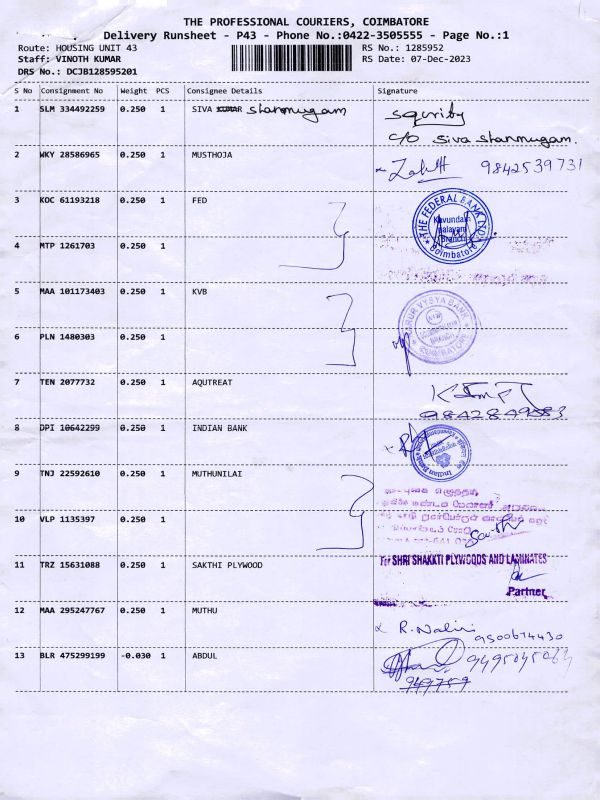 THE PROFESSIONAL COURIERS, COIMBATORE
Delivery Runsheet - P43 - Phone No.:0422-3505555 - Page No.:1
Route: HOUSING UNIT 43
RS No.: 1285952
Staff: VINOTH KUMAR
RS Date: 07-Dec-2023
DRS No.: DCJB128595201
S No Consignment No Weight PCS Consignee Details Signature
1 SLM 334492259 0.250 1 SIVA KUMAR Shanmugam
c/o Siva Shanmugam.
2 WKY 28586965 0.250 1 MUSTHOJA 9842539731
3 KOC 61193218 0.250 1 FED
THE FEDERAL BANK LTD. Kavundam palayam (Branch) Coimbatore
4 MTP 1261703 0.250 1
5 MAA 101173403 0.250 1 KVB
KARUR VYSYA BANK
COIMBATORE
6 PLN 1480303 0.250 1
7 TEN 2077732 0.250 1 AQUTREAT
9842849883
8 DPI 10642299 0.250 1 INDIAN BANK
Indian Bank
9 TNJ 22592610 0.250 1 MUTHUNILAI
10 VLP 1135397 0.250 1
11 TRZ 15631088 0.250 1 SAKTHI PLYWOOD
For SHRI SHAKKTI PLYWOODS AND LAMINATES
Partner
12 MAA 295247767 0.250 1 MUTHU
R. Nalini
9500674430
13 BLR 475299199 -0.030 1 ABDUL